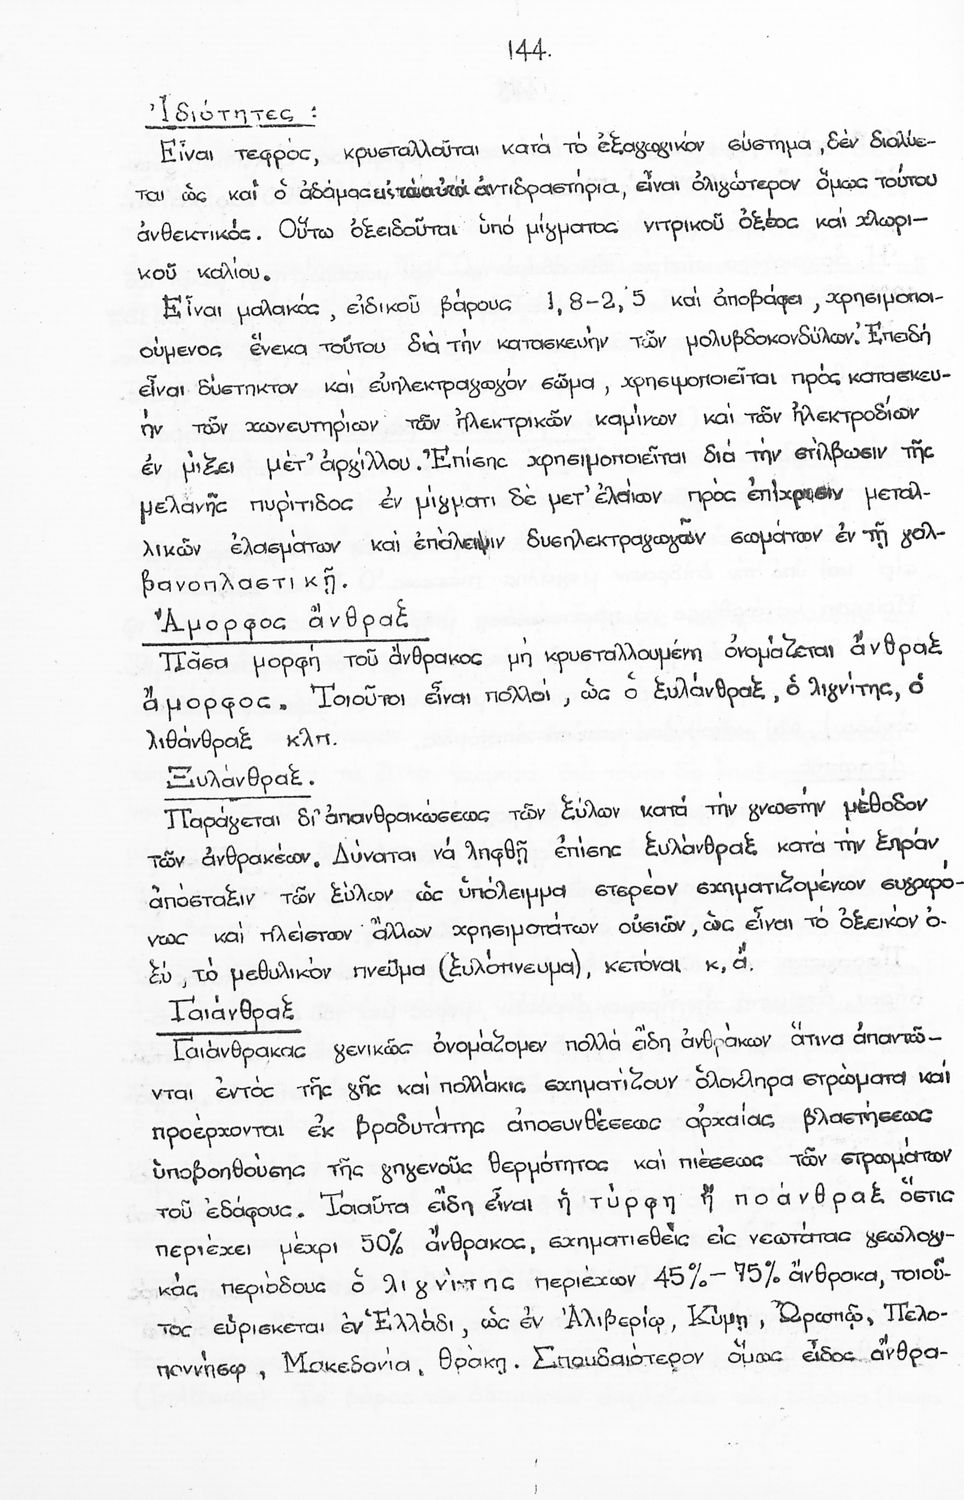 144.
Ἰδιότητες :
Εἶναι τεφρός, κρυσταλλοῦται κατά τό ἑξαγωγικόν σύστημα, δέν διαλύε-
ται ὡς καί ὁ ἀδάμας εἰς τά αὐτά ἀντιδραστήρια, εἶναι ὀλιγώτερον ὅμως τούτου
ἀνθεκτικός. Οὕτω ὀξειδοῦται ὑπό μίγματος νιτρικοῦ ὀξέος καί χλωρι-
κοῦ καλίου.
Εἶναι μαλακός, εἰδικοῦ βάρους 1,8-2,5 καί ἀποβάφει, χρησιμοποι-
ούμενος ἕνεκα τούτου διά τήν κατασκευήν τῶν μολυβδοκονδύλων. Ἐπειδή
εἶναι δύστηκτον καί εὐηλεκτραγωγόν σῶμα, χρησιμοποιεῖται πρός κατασκευ-
ήν τῶν χωνευτηρίων τῶν ἠλεκτρικῶν καμίνων καί τῶν ἠλεκτροδίων
ἐν μίξει μέτ' ἀργίλλου. Ἐπίσης χρησιμοποιεῖται διά τήν στίλβωσιν τῆς
μελανῆς πυρίτιδος ἐν μίγματι δέ μετ' ἐλαίων πρός ἐπίχρισιν μεταλ-
λικῶν ἐλασμάτων καί ἐπάλειψιν δυσηλεκτραγωγῶν σωμάτων ἐν τῇ γαλ-
βανοπλαστικῇ.
Ἄμορφος ἄνθραξ
Πᾶσα μορφή τοῦ ἄνθρακος μή κρυσταλλουμένη ὀνομάζεται ἄνθραξ
ἄμορφος. Τοιοῦτοι εἶναι πολλοί, ὡς ὁ ξυλάνθραξ, ὁ λιγνίτης, ὁ
λιθάνθραξ κλπ.
Ξυλάνθραξ.
Παράγεται δι' ἀπανθρακώσεως τῶν ξύλων κατά τήν γνωστήν μέθοδον
τῶν ἀνθρακέων. Δύναται νά ληφθῇ ἐπίσης ξυλάνθραξ κατά τήν ξηράν
ἀπόσταξιν τῶν ξύλων ὡς ὑπόλειμμα στερεόν σχηματιζομένων συγχρό-
νως καί πλείστων ἄλλων χρησιμοτάτων οὐσιῶν, ὡς εἶναι τό ὀξεικόν ὀ-
ξύ, τό μεθυλικόν πνεῦμα (ξυλόπνευμα), κετόναι κ,ἄ.
Γαιάνθραξ
Γαιάνθρακας γενικῶς ὀνομάζομεν πολλά εἴδη ἀνθράκων ἅτινα ἀπαντῶ-
νται ἐντός τῆς γῆς καί πολλάκις σχηματίζουν ὁλόκληρα στρώματα καί
προέρχονται ἐκ βραδυτάτης ἀποσυνθέσεως ἀρχαίας βλαστήσεως
ὑποβοηθούσης τῆς γηγενοῦς θερμότητος καί πιέσεως τῶν στρωμάτων
τοῦ ἐδάφους. Τοιαῦτα εἴδη εἶναι ἡ τύρφη ἤ ποάνθραξ ὅστις
περιέχει μέχρι 50% ἄνθρακος, σχηματισθείς εἰς νεωτάτας γεωλογι-
κάς περιόδους ὁ λιγνίτης περιέχων 45%-75% ἄνθρακα, τοιοῦ-
τος εὑρίσκεται ἐν Ἑλλάδι, ὡς ἐν Ἀλιβερίῳ, Κύμῃ, Ὠρωπῷ, Πελο-
ποννήσῳ, Μακεδονία, Θράκῃ. Σπουδαιότερον ὅμως εἶδος ἄνθρα-